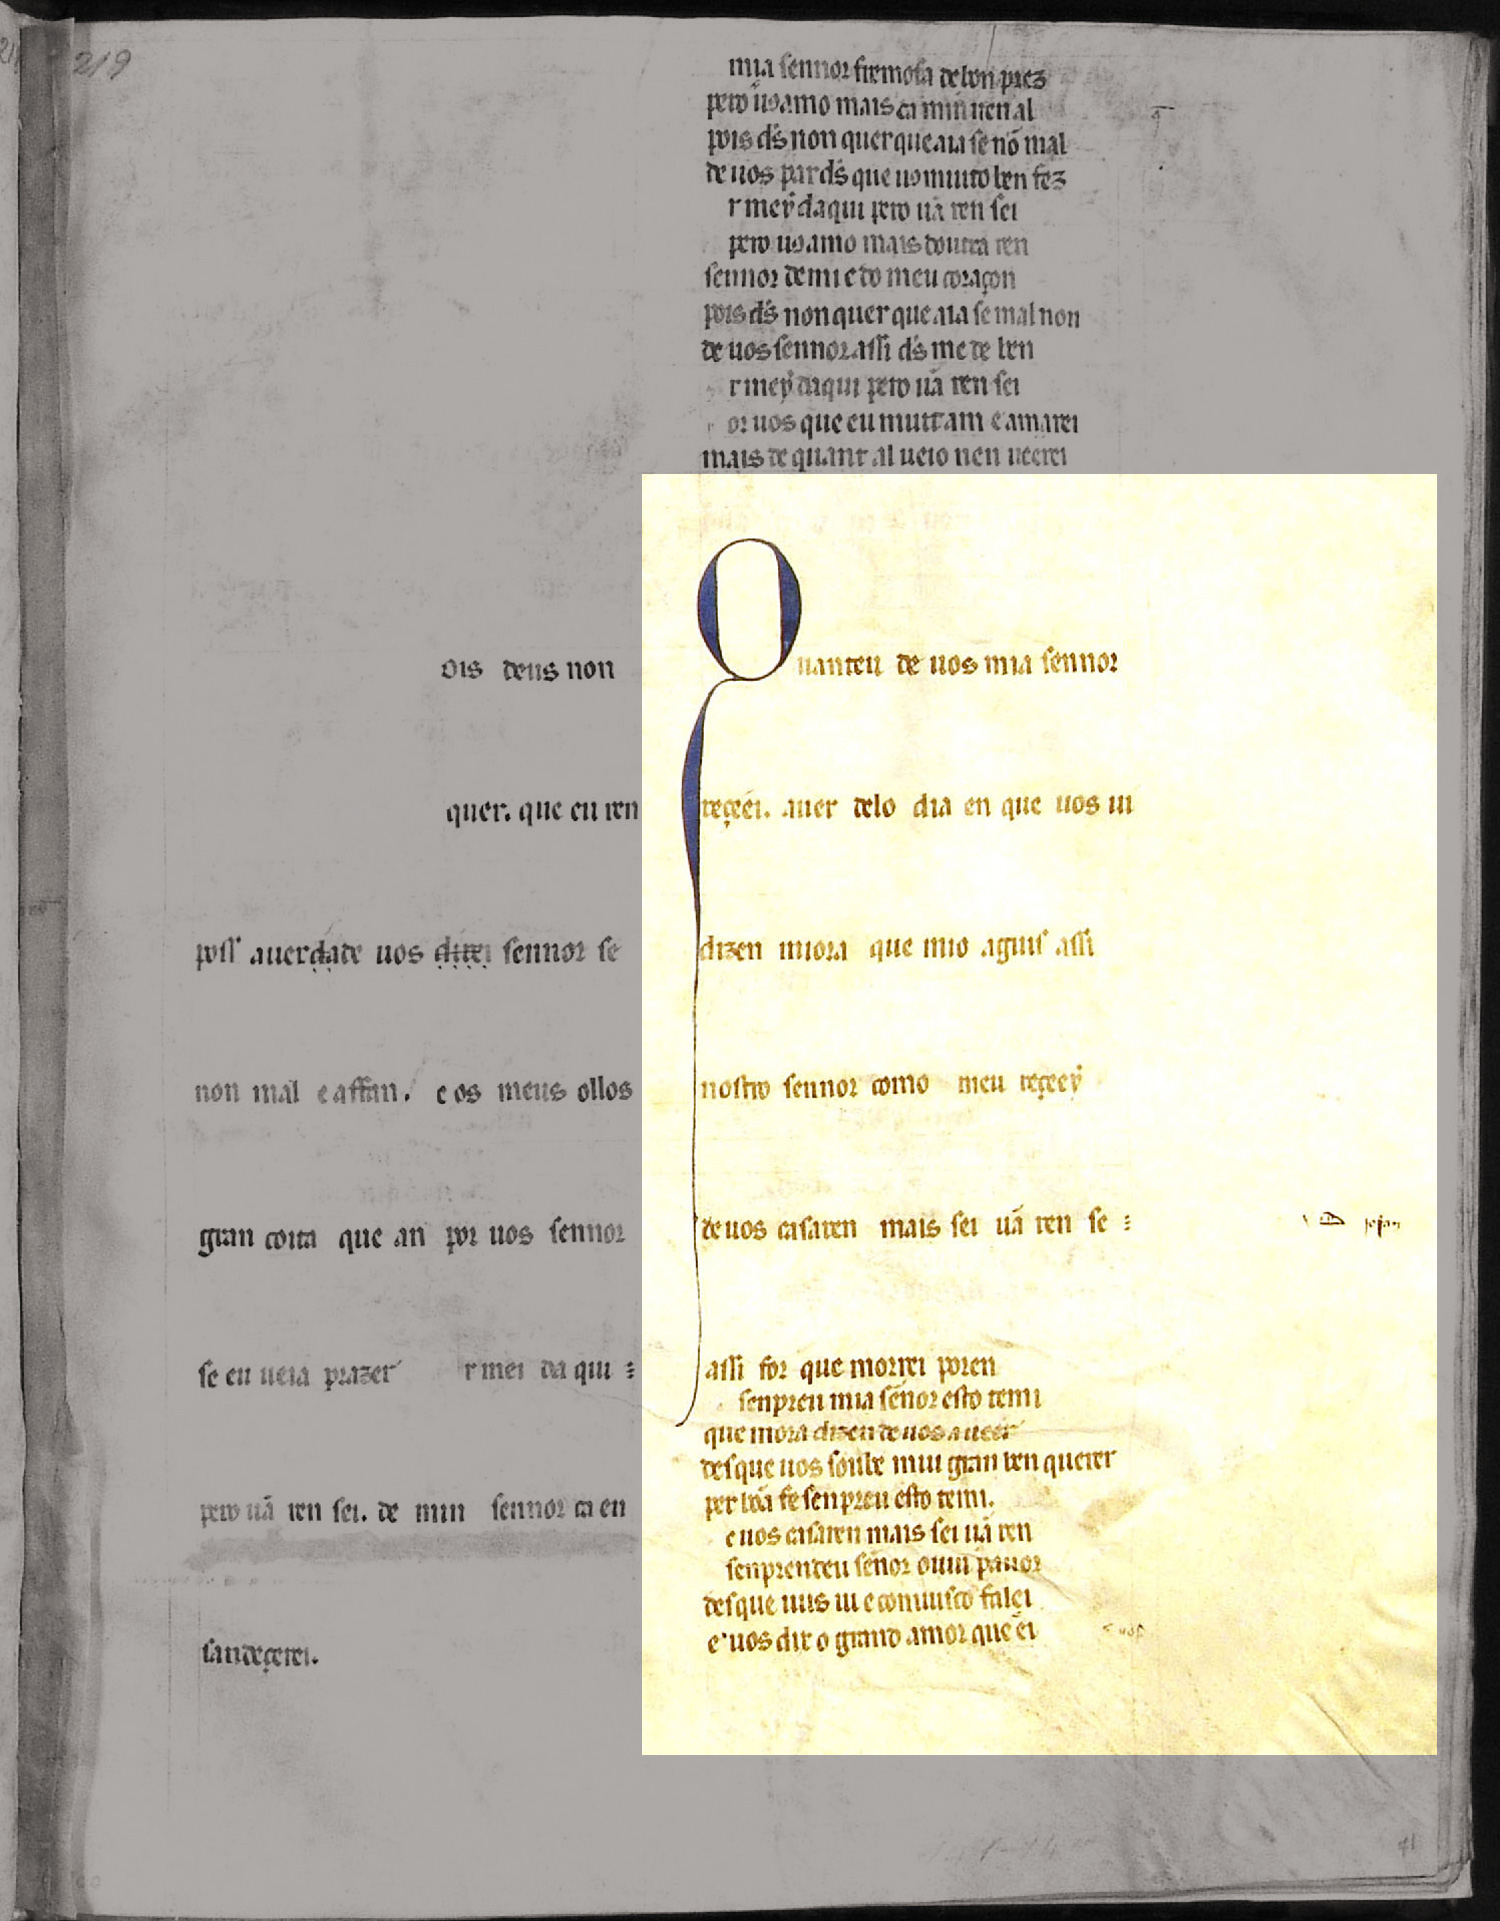 219
mia sennor fremosa de bon prez
pero uos amo mais ca min nen al
pois ds̃ non quer que aia se nõ mal
de uos par ds̃ que uo muito ben fez
r mey daqui pero uã ren sei
pero uos amo mais doutra ren
sennor de mi e do meu coraçon
pois ds̃ non quer que aia se mal non
de uos sennor assi ds̃ me de ben
r mey daqui pero uã ren sei
or uos que eu muit am e amarei
mais de quant al ueio nen ueerei
ois deus non
quer. que eu ren
poss auerdade uos direi sennor se
non mal e affan. e os meus ollos
gran coita que an por uos sennor
se eu ueia prazer r mei da qui
pero uã ren sei. de min sennor ca en
sandeçerei.
Quanteu de uos mia sennor
reçeei. auer delo dia en que uos ui
dizen miora que mio aguis assi
nostro sennor como meu reçeey
de uos casaren mais sei uã ren se
assi for que morrei poren
senpreu mia sẽnor esto temi
que mora dizen de uos auer
desque uos soube mui gran ben querer
per bõa fe senpreu esto temi.
e uos casaren mais sei uã ren
senprendeu sẽnor ouui pauor
desque uus ui e conuusco falei
e uos dix o grand amor que ei
41